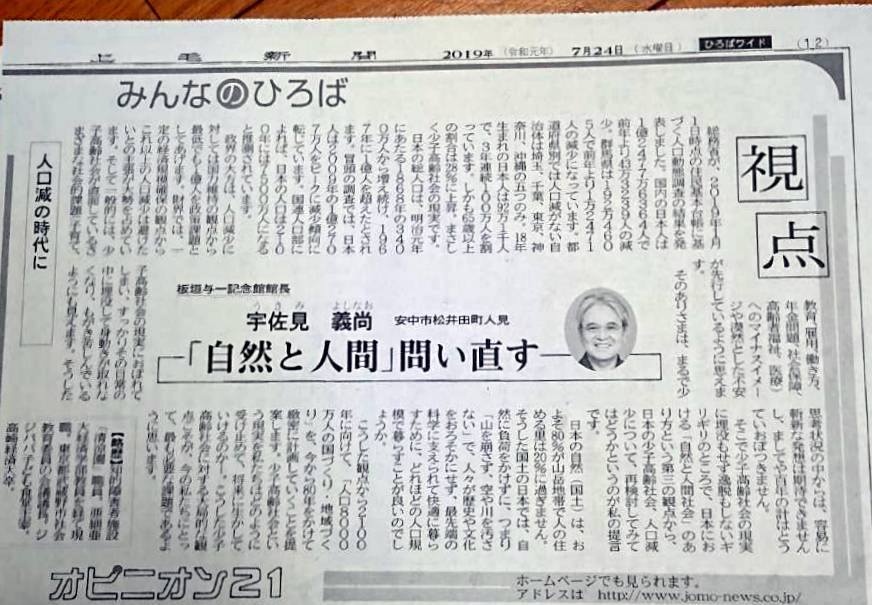 上毛新聞
2019年 (令和元年) 7月24日 (水曜日)
ひろばワイド
(12)
みんなのひろば
視点
総務省が、2019年1月
1日時点の住民基本台帳に基
づく人口動態調査の結果を発
表しました。国内の日本人は
1億2477万6364人で
前年より43万3239人の減
少。群馬県は192万460
5人で前年より1万2471
人の減少になっています。都
道府県別では人口減がない自
治体は埼玉、千葉、東京、神
奈川、沖縄の五つのみ。18年
生まれの日本人は92万1千人
で、3年連続100万人を割
っています。しかも65歳以上
の割合は28%に上昇。まさし
く少子高齢社会の現実です。
日本の総人口は、明治元年
にあたる1868年の340
0万人から増え続け、196
7年に1億人を超えたとされ
ます。冒頭の調査では、日本
人は2009年の1億270
7万人をピークに減少傾向に
転じています。国連人口部に
よれば、日本の人口は210
0年には7500万人になる
と推定されています。
政界の大方は、人口減少に
対しては国力維持の観点から
最低でも1億人を政策課題と
してあげます。財界では、一
定の経済規模確保の観点から
これ以上の人口減少は避けた
いとの主張が大勢を占めてい
ます。そして一般的には、少
子高齢社会が直面しているさ
まざまな社会的課題(子育て、
人口減の時代に
教育、雇用、働き方、
年金問題、社会保障、
高齢者福祉、医療)
へのマイナスイメー
ジや漠然とした不安
が先行しているように思えま
す。
そのありさまは、まるで少
板垣与一記念館館長
うさみ よしなお
宇佐見 義尚 安中市松井田町人見
「自然と人間」問い直す
子高齢社会の現実におぼれて
しまい、すっかりその日常の
中に埋没して身動きが取れな
くなり、もがき苦しんでいる
ようにも見えます。そうした
思考状況の中からは、容易に
斬新な発想は期待できません
し、ましてや百年の計はとう
ていおぼつきません。
そこで少子高齢社会の現実
に埋没もせず逸脱もしないギ
リギリのところで、日本にお
ける「自然と人間社会」のあ
り方という第三の観点から、
日本の少子高齢社会、人口減
少について、再検討してみて
はどうかというのが私の提言
です。
日本の自然(国土)は、お
よそ80%が山岳地帯で人の住
める里は20%に過ぎません。
そうした国土の日本では、自
然に負荷をかけずに、つまり
「山を崩さず、空や川を汚さ
ない」で、人々が歴史や文化
をおろそかにせず、最先端の
科学に支えられて快適に暮ら
すために、どれほどの人口規
模で暮らすことが良いのでし
ょうか。
こうした観点から2100
年に向けて、「人口8000
万人の国づくり・地域づく
り」を、今から80年をかけて
緻密に計画していくことを提
案します。少子高齢社会とい
う現実を私たちはどのように
受け止めて、将来に生かして
いけるのか。こうした少子
高齢社会に対する大局的な観
点こそが、今の私たちにとっ
て、最も必要な課題であるよ
うに思います。
【略歴】知的障害者施設
職員。亜細亜
大経済学部教員を経て現
職。東京都武蔵野市社会
教育委員の会議議長。ジ
ジババ子ども食堂主宰。
高崎経済大卒。
オピニオン21
ホームページでも見られます。
アドレスは http://www.jomo-news.co.jp/